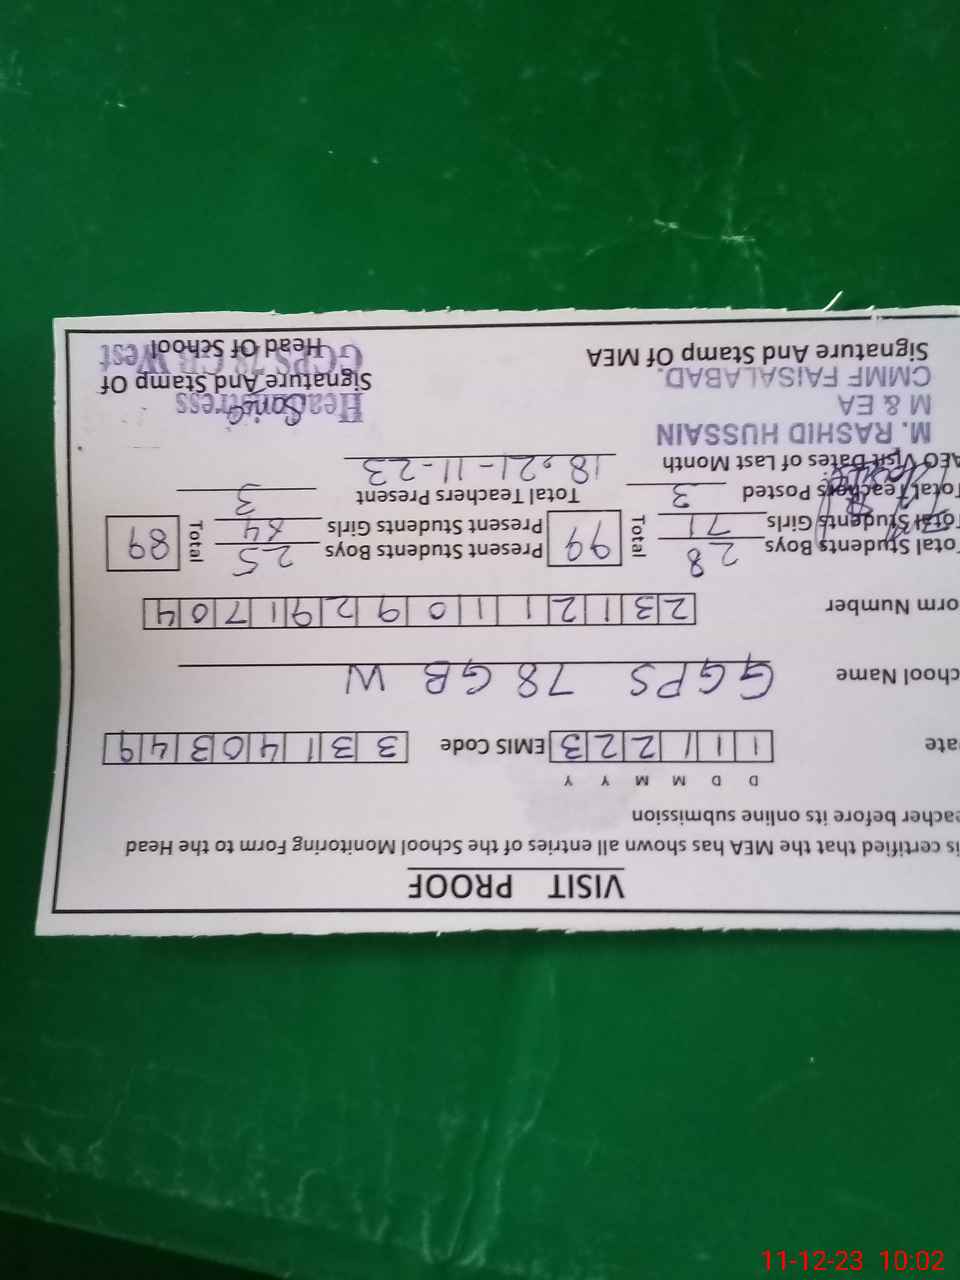 VISIT PROOF
is certified that the MEA has shown all entries of the School Monitoring Form to the Head
eacher before its online submission
D D M M Y Y
ate 1 1 1 2 2 3 EMIS Code 3 3 1 4 0 3 4 9
chool Name GGPS 78 GB W
orm Number 2 3 1 2 1 1 1 0 9 2 9 1 7 0 4
Total Students Boys 28 Total 99 Present Students Boys 25 Total 89
Total Students Girls 71 Present Students Girls 64
Total Teachers Posted 3 Total Teachers Present 3
AEO Visit Dates of Last Month 18, 21-11-23
M. RASHID HUSSAIN
M & EA
CMMF FAISALABAD.
Signature And Stamp Of MEA
Headmistress
Signature And Stamp Of
Head Of School
GGPS 78 GB West
11-12-23 10:02